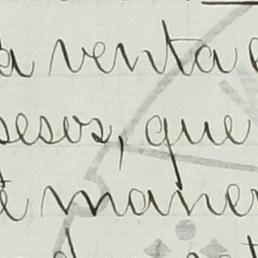 a venta
sesos, que
maner